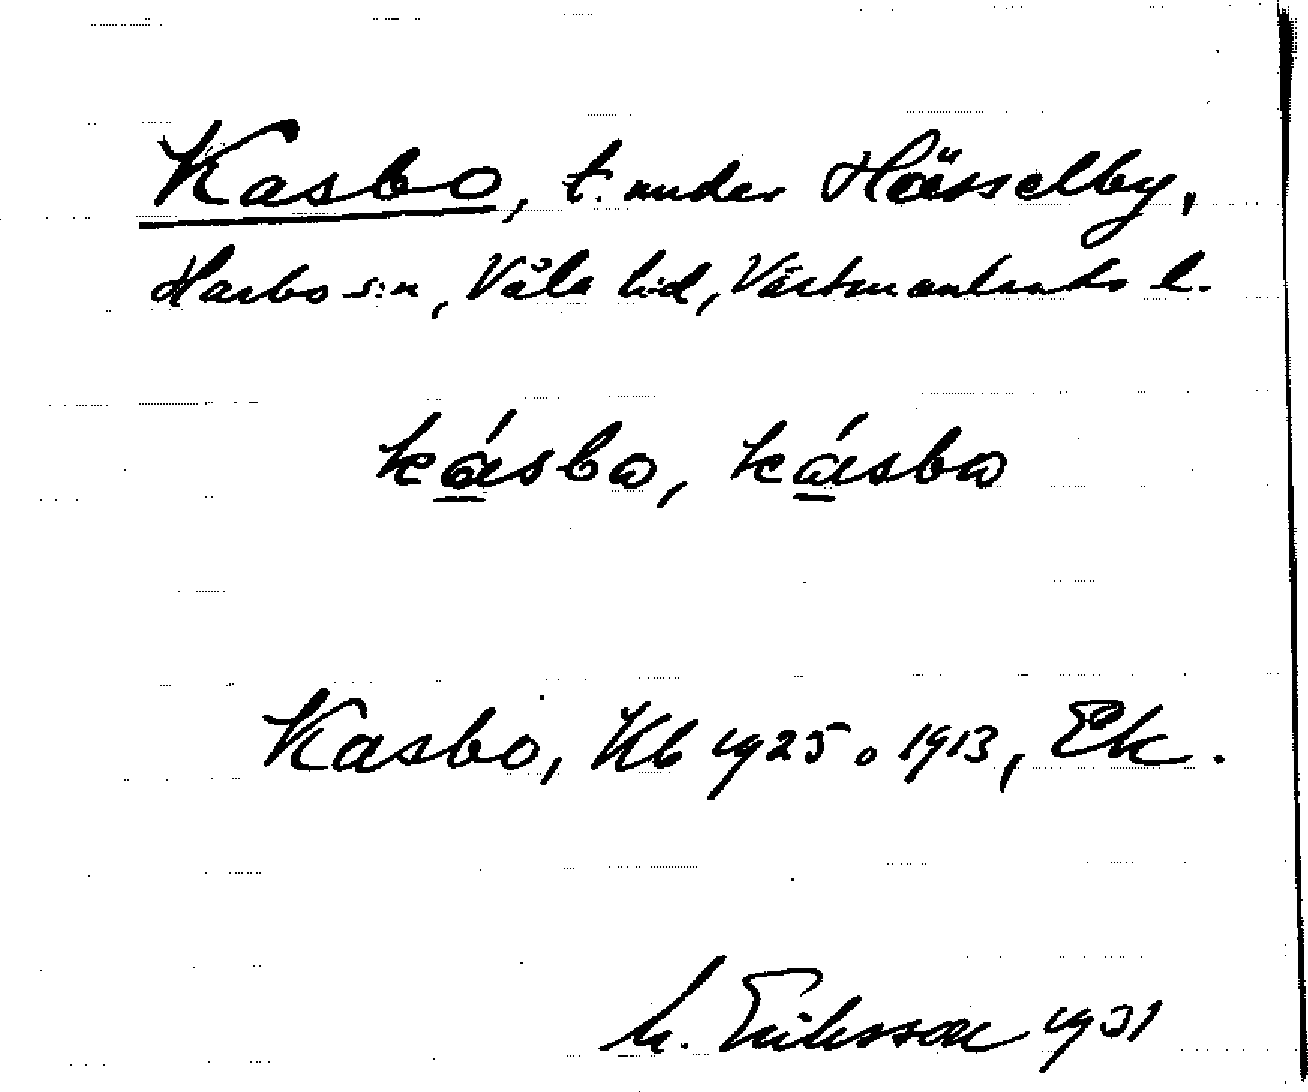 Kasbo, t. under Hässelby,
Harbo s:n, Våla hd, Västmanlands l.
kásbω, kásbω
Kasbo, Kb 1925 o 1913, Ek.
M. Eriksson 1931